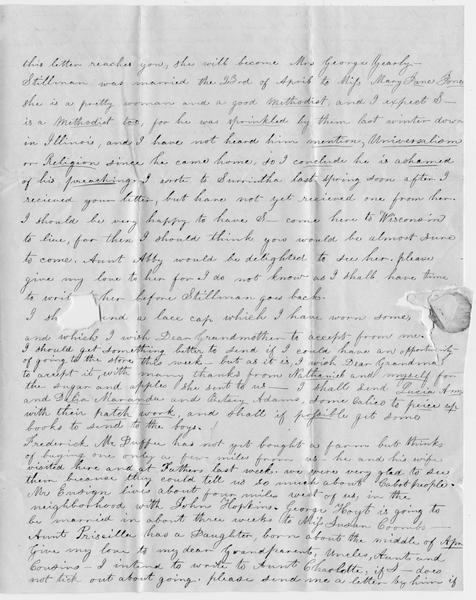 this letter reaches you, she will become Mrs George Yearly—
Stillman was married the 23rd of April to Miss Mary Jane Jones
she is a pretty woman and a good Methodist, and I expect S—
is a Methodist too, for he was sprinkled by them last winter down
in Illinois, and I have not heard him mention, Universalism
or Religion since he came home, so I conclude he is ashamed
of his preaching. I wrote to Surrintha last spring soon after I
recieved your letter, but have not yet recieved one from her.
I should be very happy to have S— come here to Wisconsin
to live, for then I should think you would be almost sure
to come. Aunt Abby would be delighted to see her. please
give my love to her for I do not know as I shall have time
to write her before Stillman goes back.
I send a lace cap which I have worn some,
and which I wish Dear Grandmother to accept from me.
I should get something better to send if I could have an opportunity
of going to the store this week— but as it is, I wish Dear Grandma
to acept it, with many thanks from Nathaniel and myself for
the sugar and apples she sent to us— I shall send Lucia Ann
and Maranda and Betsey Adams, some calico to peice up
with their patch work, and shall if possible get some
books to send to the boys.
Frederick Mc Duffee has not yet bought a farm but thinks
of buying one only a few miles from us— he and his wife
visited here and at Fathers last week. we were very glad to see
them because they could tell us so much about Cabot people.
Mr Ensign lives about four miles west of us, in the
neighborhood with John Hopkins. George Hoyt is going to
be married in about three weeks to Miss Susan Coombs—
Aunt Priscilla has a Daughter, born about the middle of Apr.
Give my love to my dear Grandparents, Uncles, Aunts and
Cousins— I intend to write to Aunt Charlotte, if S— does
not tick out about going. please send me a letter by him if